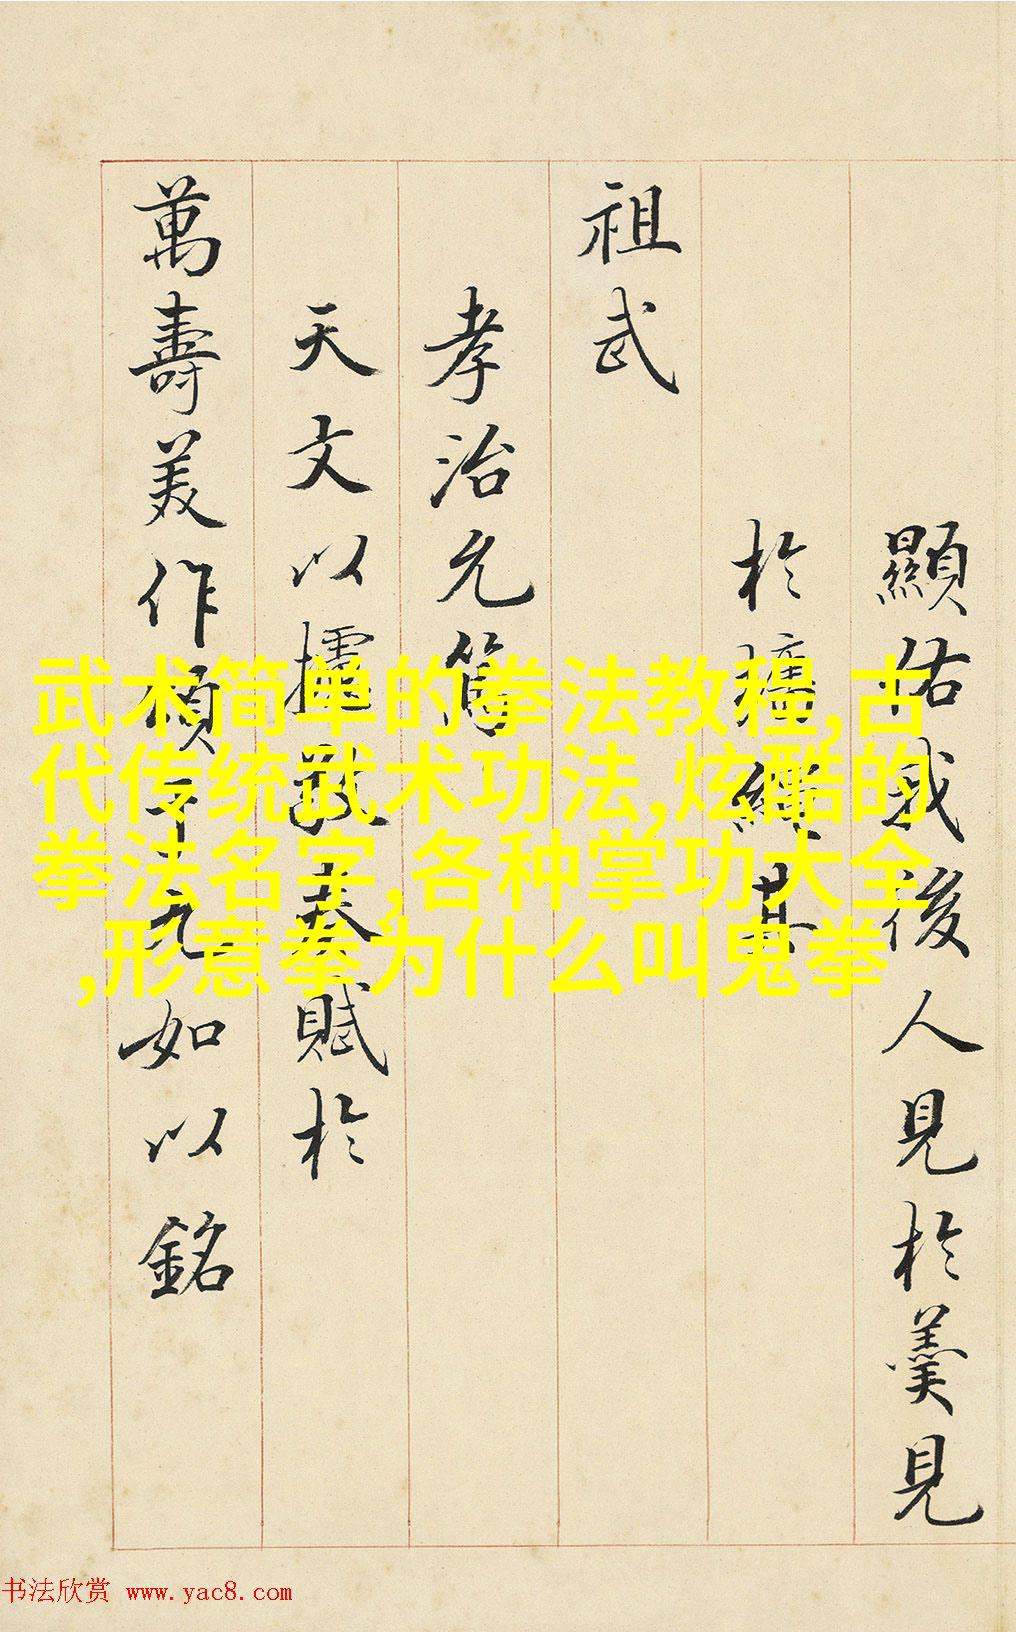 顯佑我後人見於羹見
於墻繩其
祖武
孝治允篤
天文以摛敷奏賦於
萬壽美作頌千九如以銘
武术简单的拳法教程,古
代传统武术功法,炫酷的
拳法名字,各种掌功大全
,形意拳为什么叫鬼拳
书法欣赏 www.yac8.com